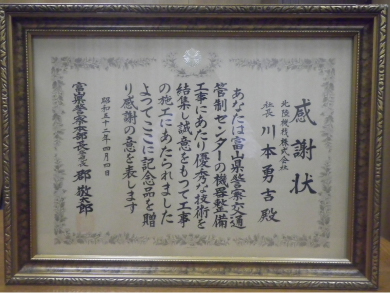 感謝状
北陸機材株式会社
社長 川本勇吉殿
あなたは富山県警察交通
管制センターの機器整備
工事にあたり優秀な技術を
結集し誠意をもつて工事
の施工にあたられました
よつてここに記念品を贈
り感謝の意を表します
昭和五十二年四月四日
富山県警察本部長
郡 敬太郎